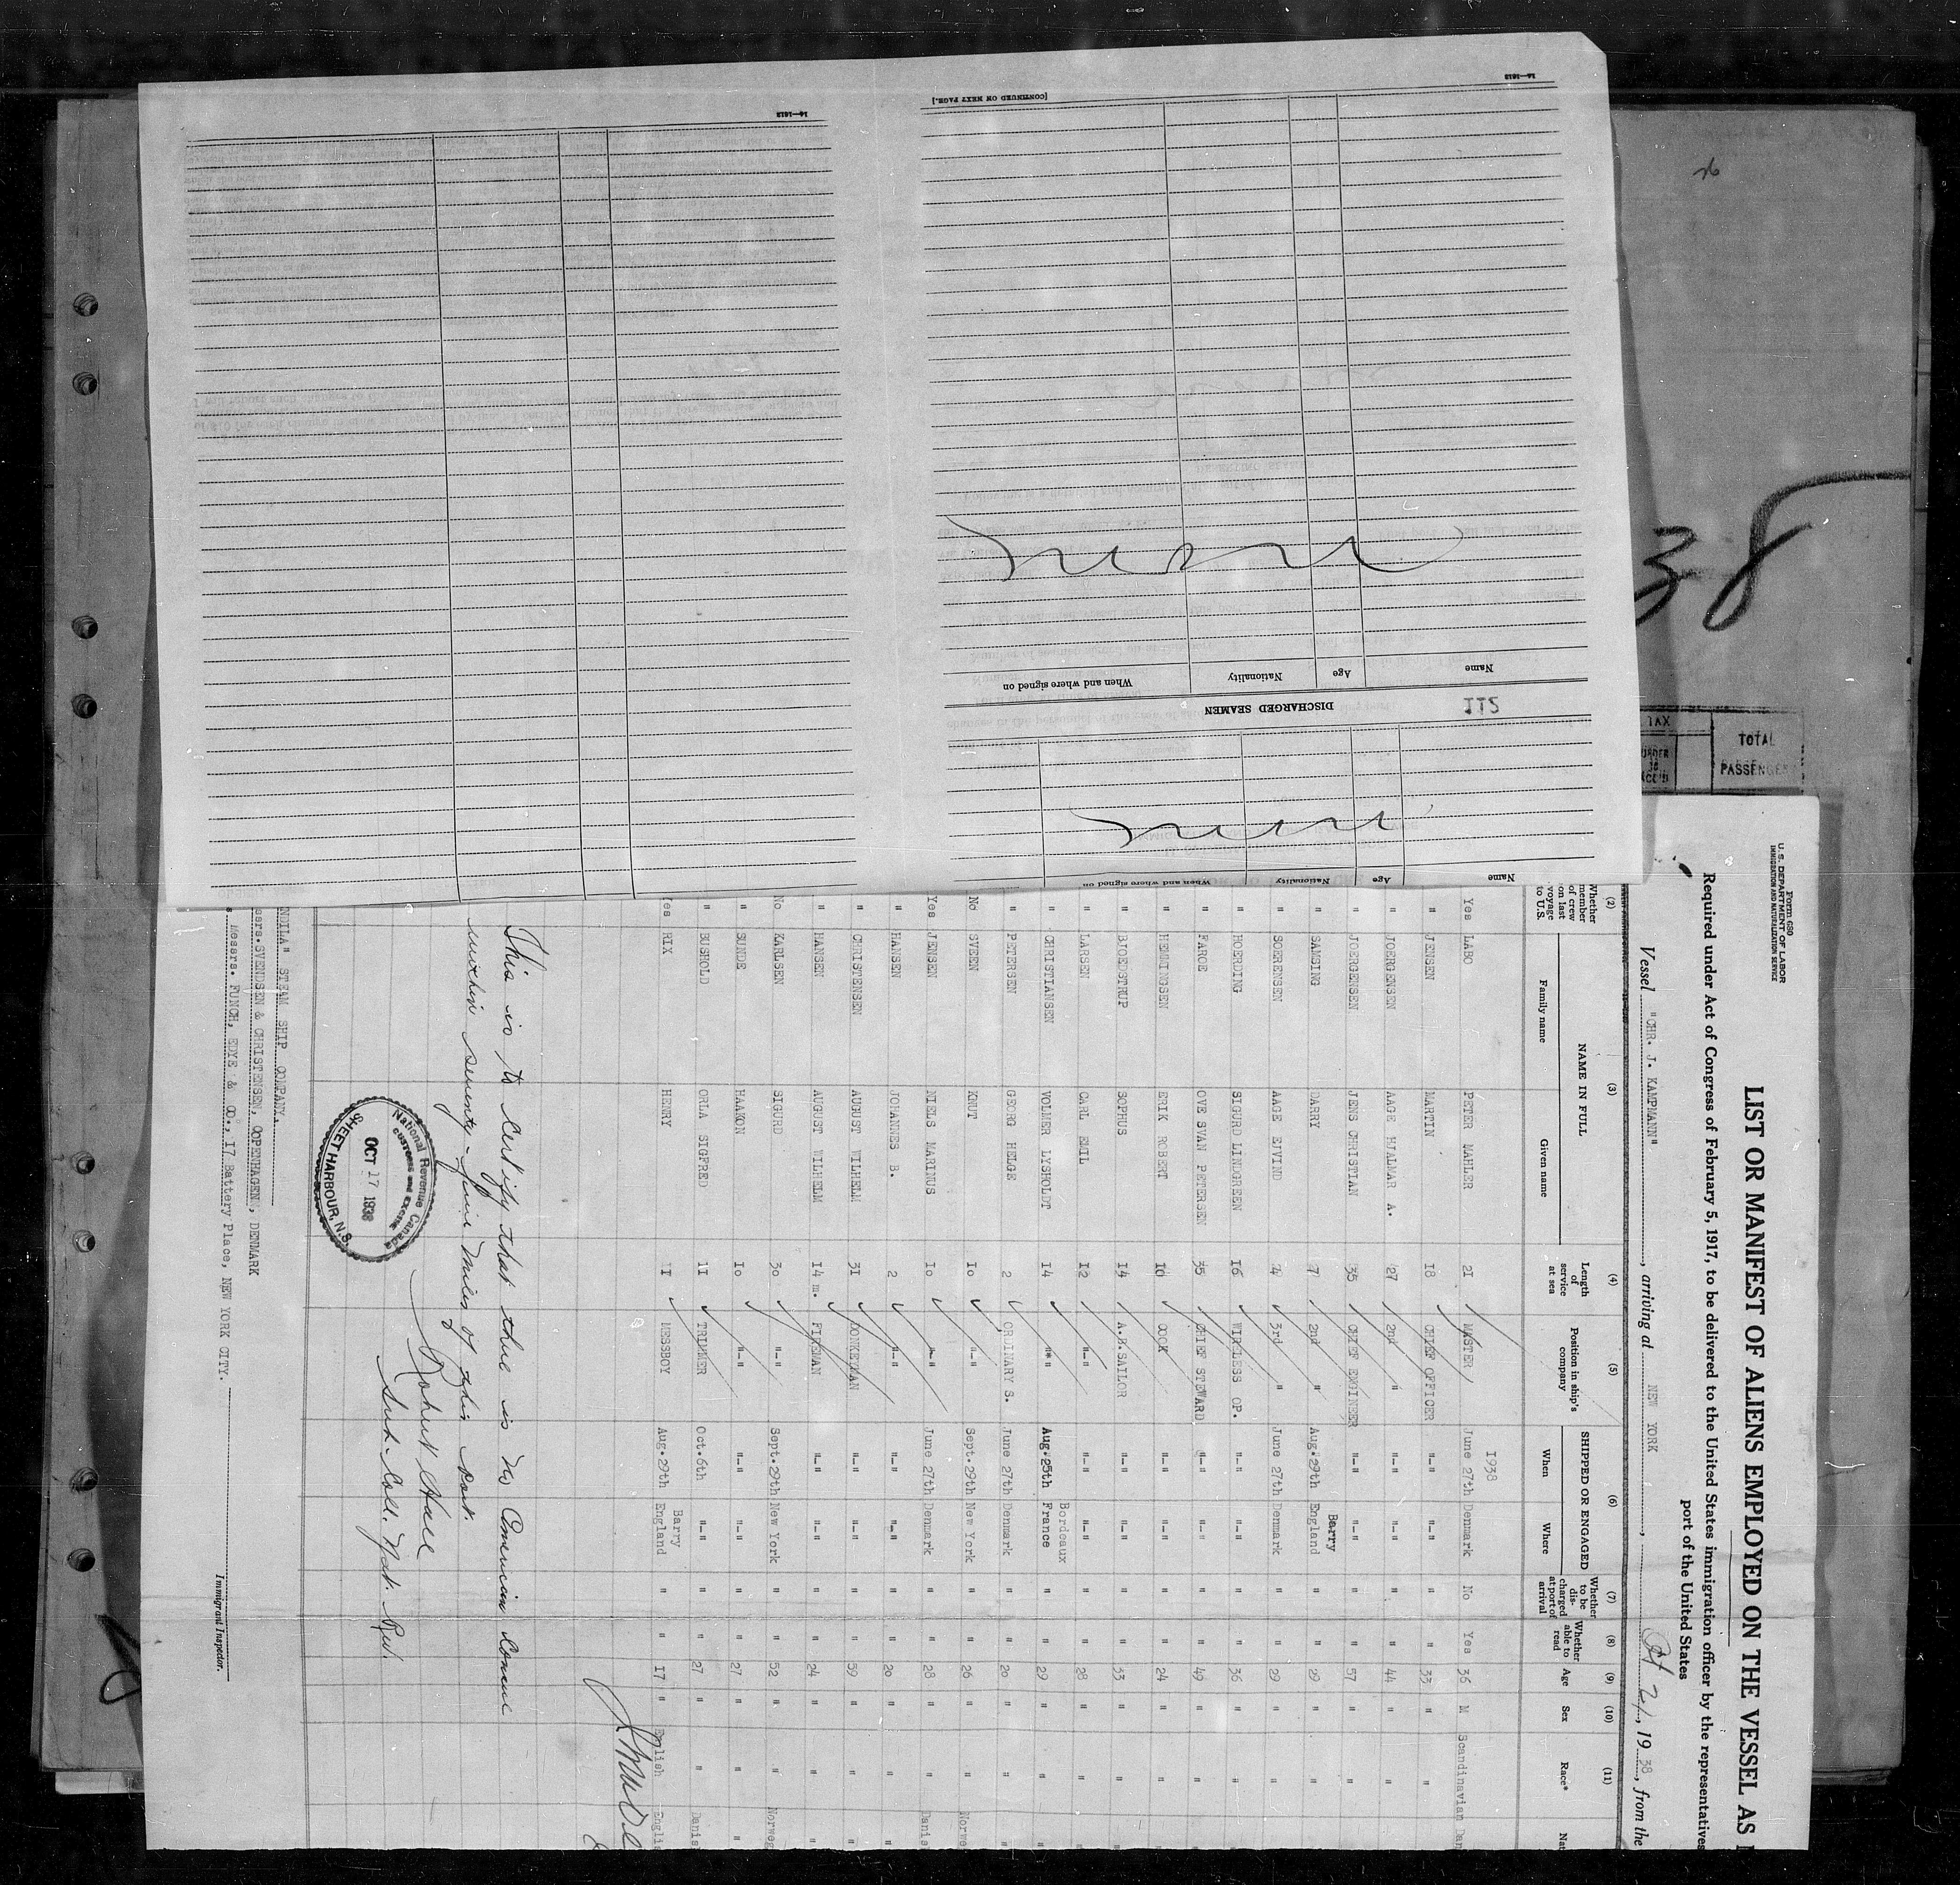 Form 680
U. S. DEPARTMENT OF LABOR
IMMIGRATION AND NATURALIZATION SERVICE
LIST OR MANIFEST OF ALIENS EMPLOYED ON THE VESSEL AS
Required under Act of Congress of February 5, 1917, to be delivered to the United States immigration officer by the representatives
port of the United States
Vessel "CHR. J. KAMPMANN", arriving at NEW YORK, Oct 21, 1938, from the
(2) (3) (4) (5) (6) (7) (8) (9) (10) (11)
Whether member of crew on last voyage to U.S. NAME IN FULL Family name Given name Length of service at sea Position in ship's company SHIPPED OR ENGAGED When Where Whether to be discharged at port of arrival Whether able to read Age Sex Race* Nat
1938
Yes LABO PETER MAHLER 21 MASTER June 27th Denmark No Yes 36 M Scandinavian Dan
" JENSEN MARTIN 18 CHIEF OFFICER "-" "-" " " 33 " "
" JOERGENSEN AAGE HJALMAR A. 27 2nd " "-" "-" " " 44 " "
" JOERGENSEN JENS CHRISTIAN 35 CHIEF ENGINEER "-" "-" " " 57 " "
Barry
" SAMSING DARRY 7 2nd " Aug.29th England " " 29 " "
" SOERENSEN AAGE EJVIND 4 3rd " June 27th Denmark " " 29 " "
" HOERDING SIGURD LINDGREEN 16 WIRELESS OP. "-" "-" " " 36 " "
" FAROE OVE SVAN PETERSEN 35 CHIEF STEWARD "-" "-" " " 49 " "
" HEMMINGSEN ERIK ROBERT 10 COOK "-" "-" " " 24 " "
" BJOEDSTRUP SOPHUS 14 A.B.SAILOR "-" "-" " " 33 " "
" LARSEN CARL EMIL 12 "-" "-" "-" " " 28 " "
Bordeaux
" CHRISTIANSEN VOLMER LYSHOLDT 14 "-" Aug.25th France " " 29 " "
" PETERSEN GEORG HELGE 2 ORDINARY S. June 27th Denmark " " 20 " "
No SVEEN KNUT 10 "-" Sept.29th New York " " 26 " " Norwe
Yes JENSEN NIELS MARINUS 10 "-" June 27th Denmark " " 28 " " Danis
" HANSEN JOHANNES B. 2 "-" "-" "-" " " 20 " "
" CHRISTENSEN AUGUST WILHELM 31 DONKEYMAN "-" "-" " " 59 " "
" HANSEN AUGUST WILHELM 14 m. FIREMAN "-" "-" " " 24 " "
No KARLSEN SIGURD 30 "-" Sept.29th New York " " 52 " " Norweg
" SUNDE HAAKON 10 "-" "-" "-" " " 27 " " "
" BUSHOLD ORLA SIGFRED 11 TRIMMER Oct.6th "-" " " 27 " " Danis
Barry
Yes RIX HENRY 1 MESSBOY Aug.29th England " " 17 " English Englis
This is to certify that there is no American Consul
within seventy-five miles of this port.
Robert Hall
Sub. Coll. Nat. Rev.
National Revenue Canada
CUSTOMS and EXCISE
OCT 17 1938
SHEET HARBOUR, N.S.
NDILA" STEAM SHIP COMPANY.
ssrs. SVENDSEN & CHRISTENSEN, COPENHAGEN, DENMARK
Messrs. FUNCH, EDYE & Co., 17 Battery Place, NEW YORK CITY.
Immigrant Inspector.
Name Age Nationality When and where signed on
none
112
DISCHARGED SEAMEN
Name Age Nationality When and where signed on
none
[CONTINUED ON NEXT PAGE.]
14—1612
14—1612
38
TAX
TOTAL
PASSENGERS
UNDER
16